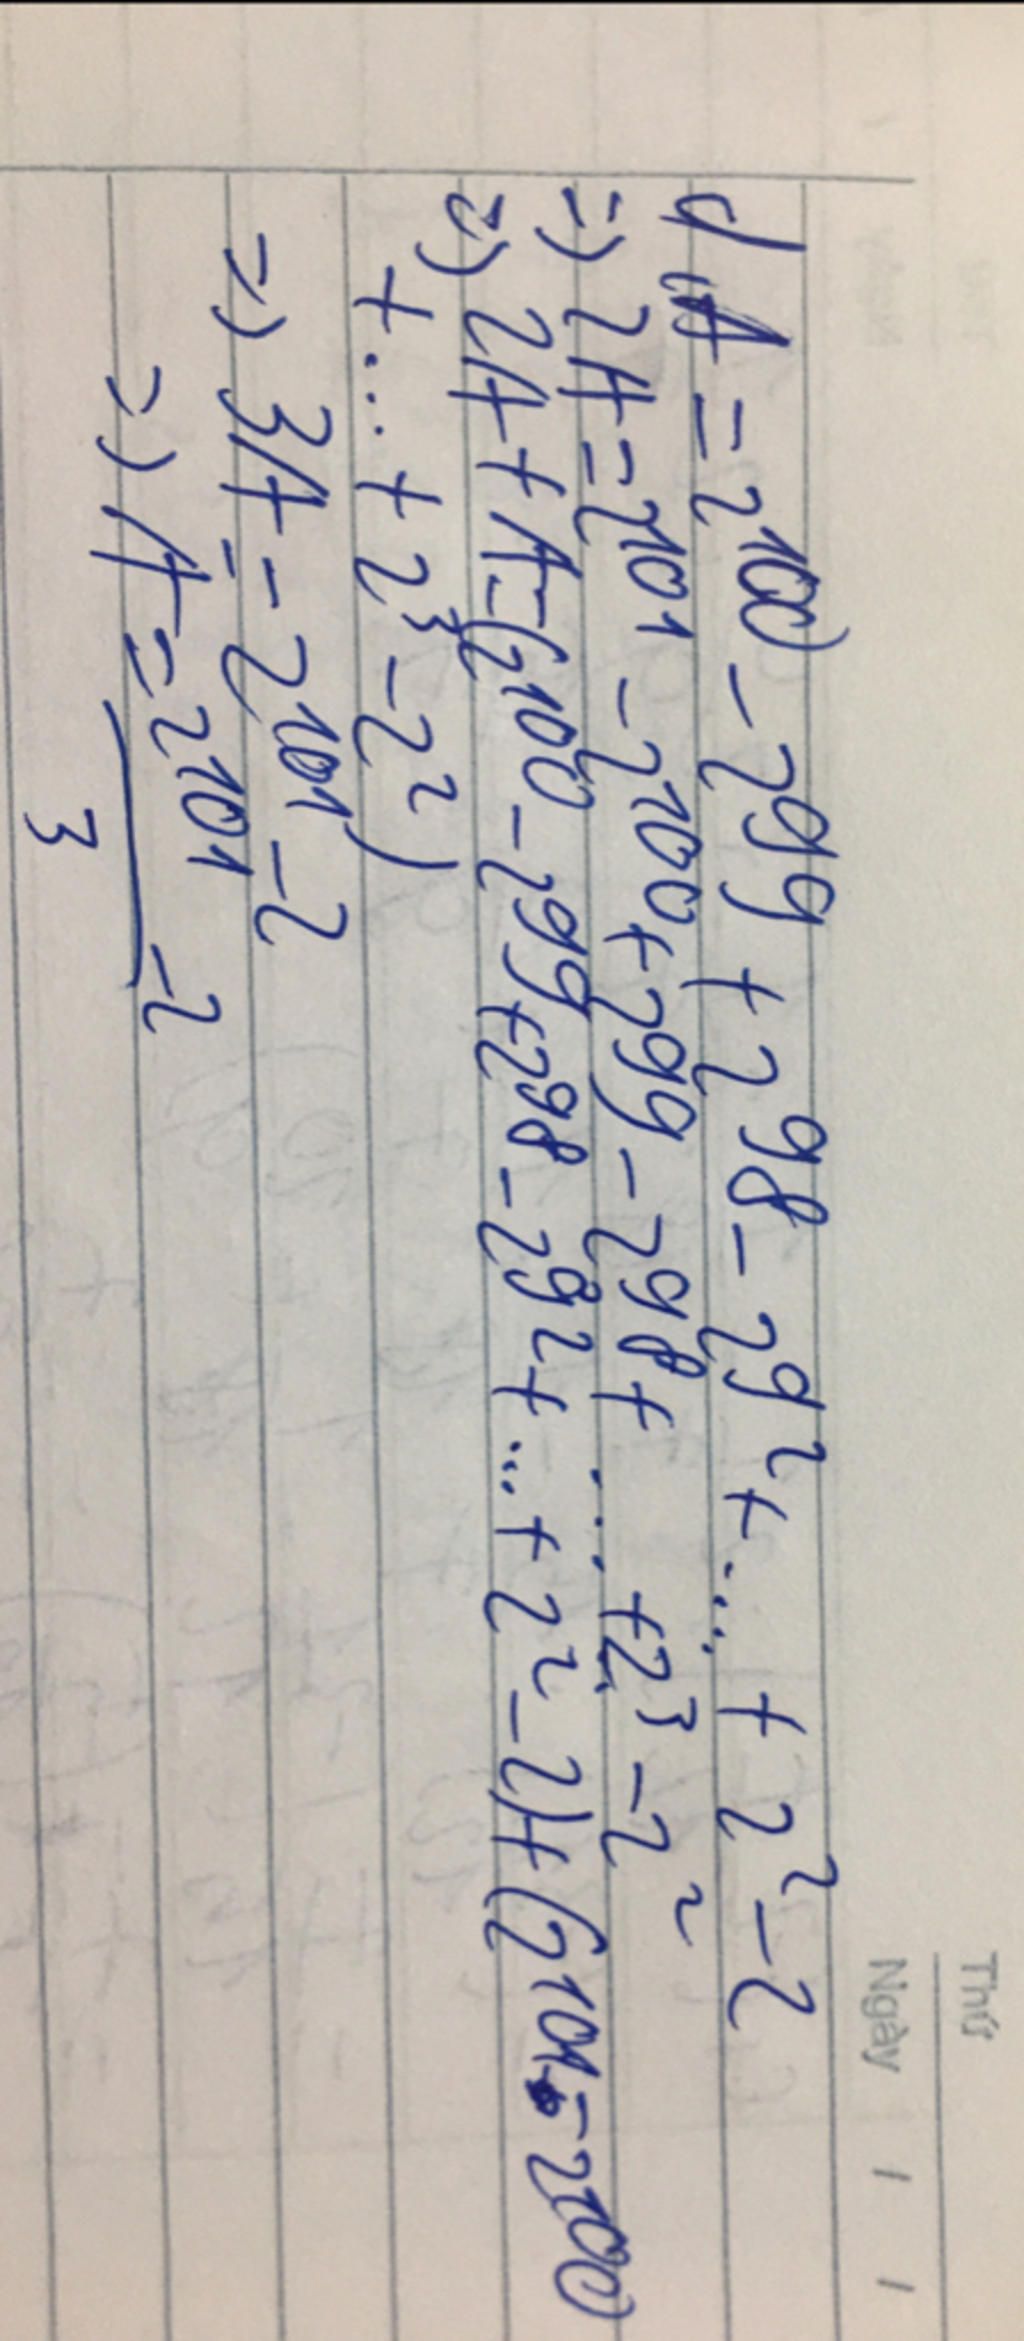 Thứ
Ngày / /
d, A = 2¹⁰⁰ - 2⁹⁹ + 2⁹⁸ - 2⁹² + ... + 2² - 2
=) 2A = 2¹⁰¹ - 2¹⁰⁰ + 2⁹⁹ - 2⁹⁸ + ... + 2³ - 2²
=) 2A + A = (2¹⁰⁰ - 2⁹⁹ + 2⁹⁸ - 2⁹² + ... + 2² - 2) + (2¹⁰¹ - 2¹⁰⁰
+ ... + 2³ - 2²)
=) 3A = 2¹⁰¹ - 2
=) A = 2¹⁰¹ - 2
3